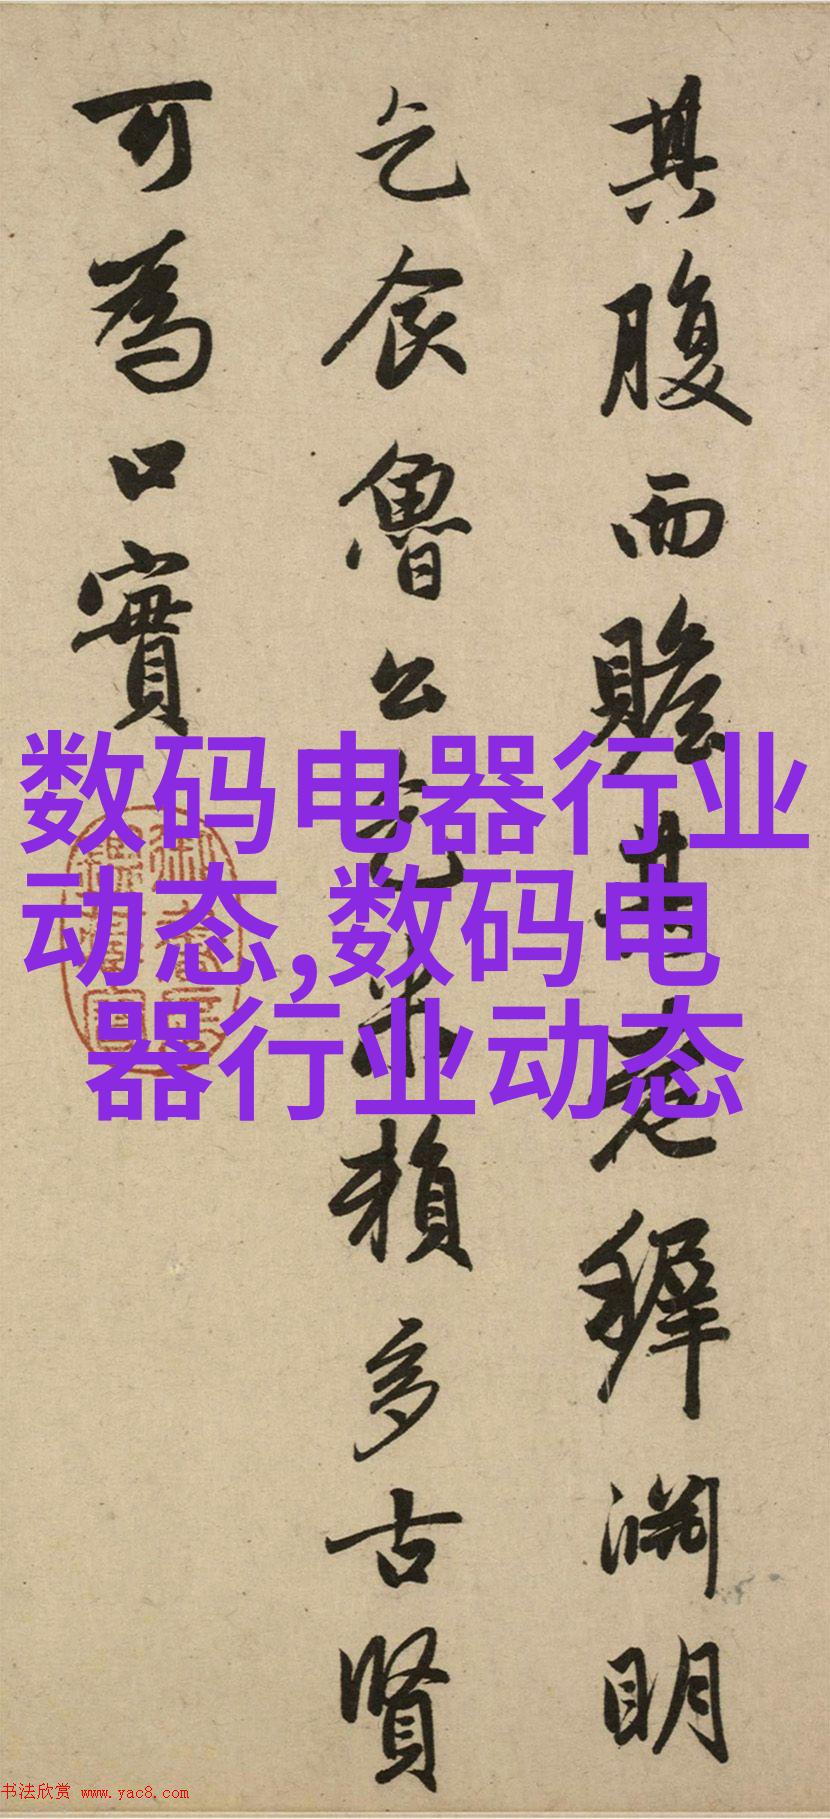 其腹而贍其老穉淵明
乞食魯公乞米賴多古賢
可為口實
数码电器行业
动态,数码电
器行业动态
书法欣赏 www.yac8.com